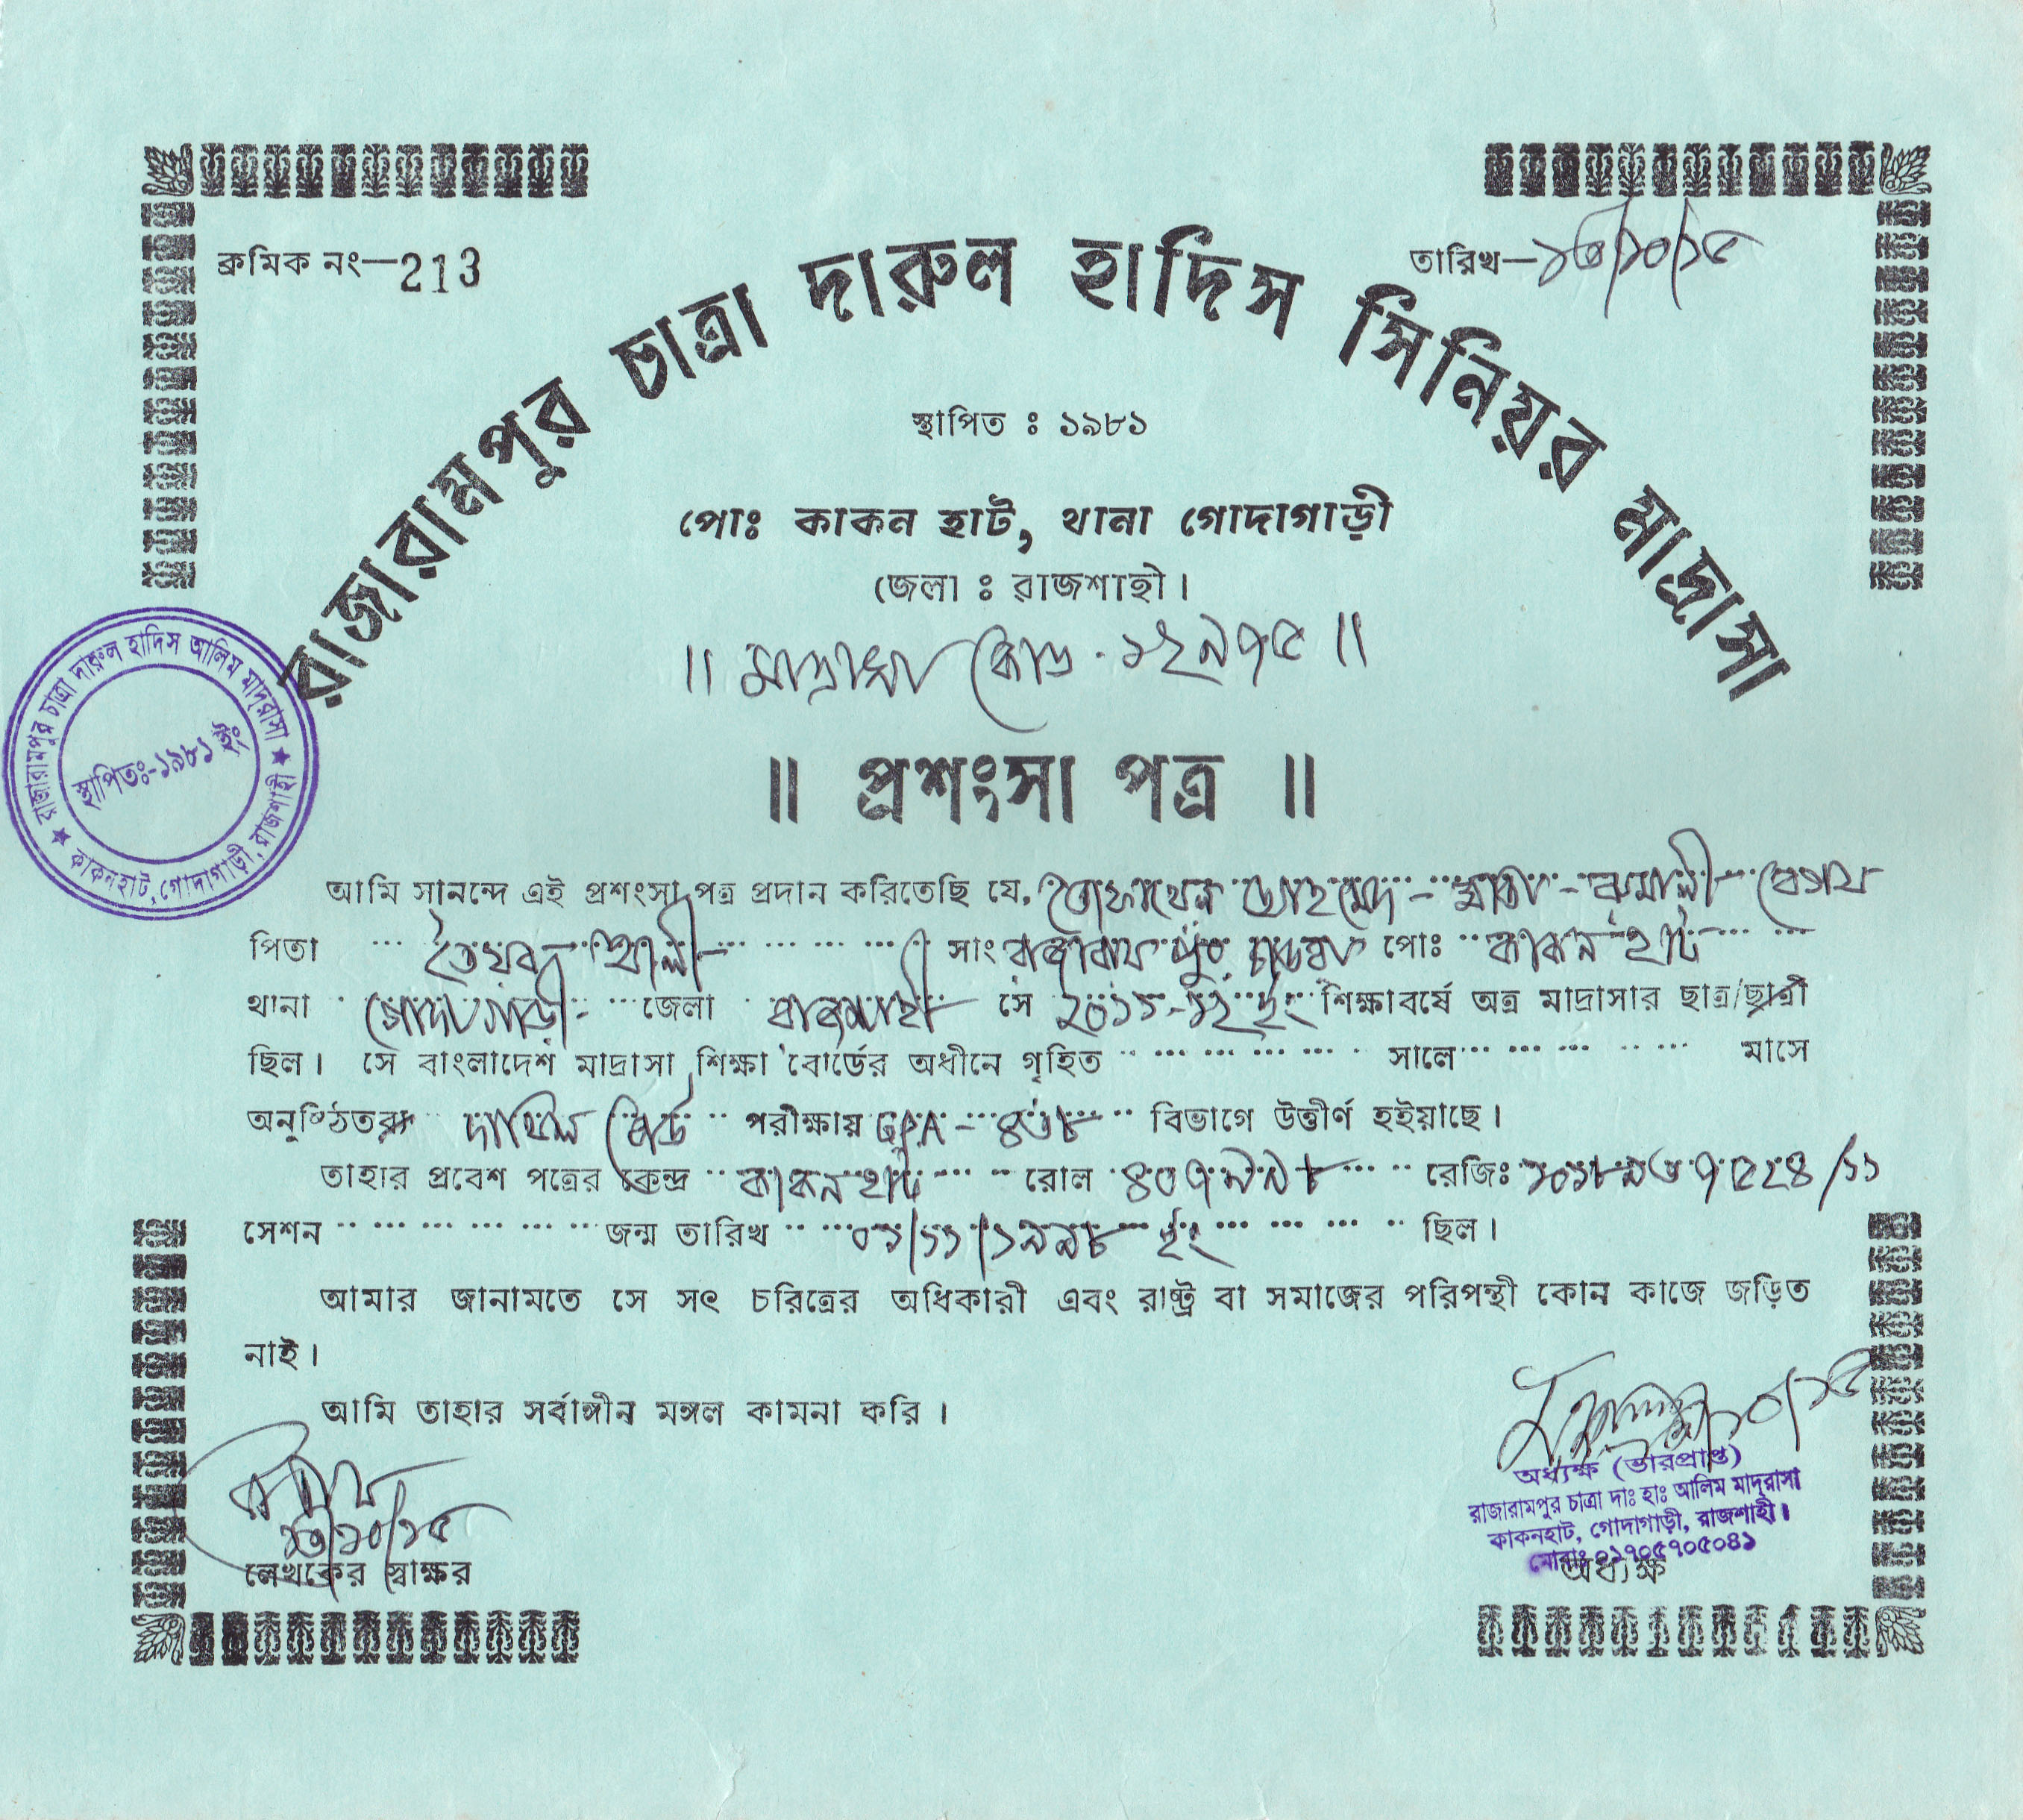 ক্রমিক নং—213
তারিখ—১৩/১০/১৫
রাজারামপুর চাত্রা দারুল হাদিস সিনিয়র মাদ্রাসা
স্থাপিত ঃ ১৯৮১
পোঃ কাকন হাট, থানা গোদাগাড়ী
জেলা ঃ রাজশাহী।
॥ মাদ্রাসা কোড - ১২৯৭৫ ॥
রাজারামপুর চাত্রা দারুল হাদিস আলিম মাদ্‌রাসা
স্থাপিতঃ-১৯৮১ ইং
কাকনহাট, গোদাগাড়ী, রাজশাহী
॥ প্রশংসা পত্র ॥
আমি সানন্দে এই প্রশংসা পত্র প্রদান করিতেছি যে, তোফায়েল আহমেদ - মাতা - রুমালী বেগম
পিতা তৈয়ব আলী সাং রাজারামপুর পোঃ কাকন হাট
থানা গোদাগাড়ী জেলা রাজশাহী সে ২০১১-১২ ইং শিক্ষাবর্ষে অত্র মাদ্রাসার ছাত্র/ছাত্রী
ছিল। সে বাংলাদেশ মাদ্রাসা শিক্ষা বোর্ডের অধীনে গৃহিত সালে মাসে
অনুষ্ঠিতব্য দাখিল বোর্ড পরীক্ষায় GPA - ৪.৩৮ বিভাগে উত্তীর্ণ হইয়াছে।
তাহার প্রবেশ পত্রের কেন্দ্র কাকনহাট রোল ৪০৭৯৯৮ রেজিঃ ১০১৮৯৩৭৫২৪/১১
সেশন জন্ম তারিখ ০১/১১/১৯৯৮ ইং ছিল।
আমার জানামতে সে সৎ চরিত্রের অধিকারী এবং রাষ্ট্র বা সমাজের পরিপন্থী কোন কাজে জড়িত
নাই।
আমি তাহার সর্বাঙ্গীন মঙ্গল কামনা করি।
১৩/১০/১৫
লেখকের স্বাক্ষর
অধ্যক্ষ (ভারপ্রাপ্ত)
রাজারামপুর চাত্রা দাঃ হাঃ আলিম মাদ্‌রাসা
কাকনহাট, গোদাগাড়ী, রাজশাহী।
মোবাঃ ০১৭০৫৭০৫০৪১
অধ্যক্ষ